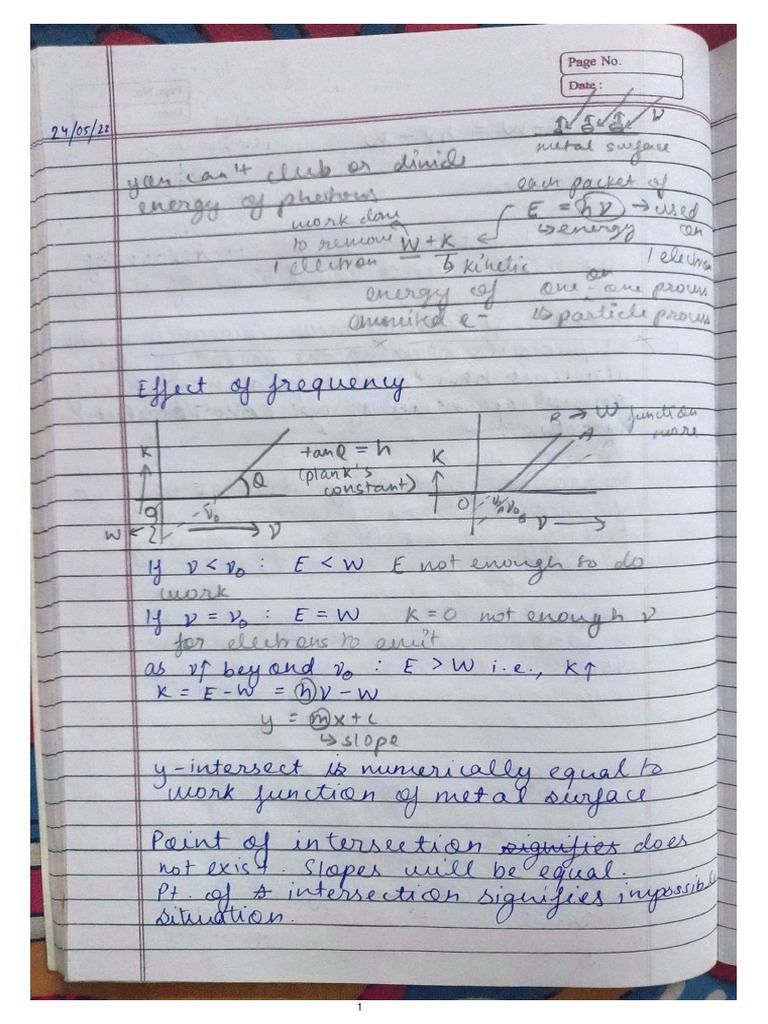 Page No.
Date :
24/05/22
ν
metal surface
you can't club or divide
energy of photons
each packet of
E = hν → used
↳ energy on
1 electron
work done
to remove
1 electron
W + K
↳ kinetic
energy of
emitted e-
one - one process
↳ particle process
Effect of frequency
K
tanθ = h
(plank's
constant)
θ
O
ν₀
ν
W
K
B → W function
more
A
O
ν
If ν < ν₀ : E < W E not enough to do
work
If ν = ν₀ : E = W K = 0 not enough ν
for electrons to emit
as ν↑ beyond ν₀ : E > W i.e., K↑
K = E - W = hν - W
y = mx + c
↳ slope
y-intersect is numerically equal to
work function of metal surface
Point of intersection signifies does
not exist. Slopes will be equal.
Pt. of intersection signifies impossible
situation.
1